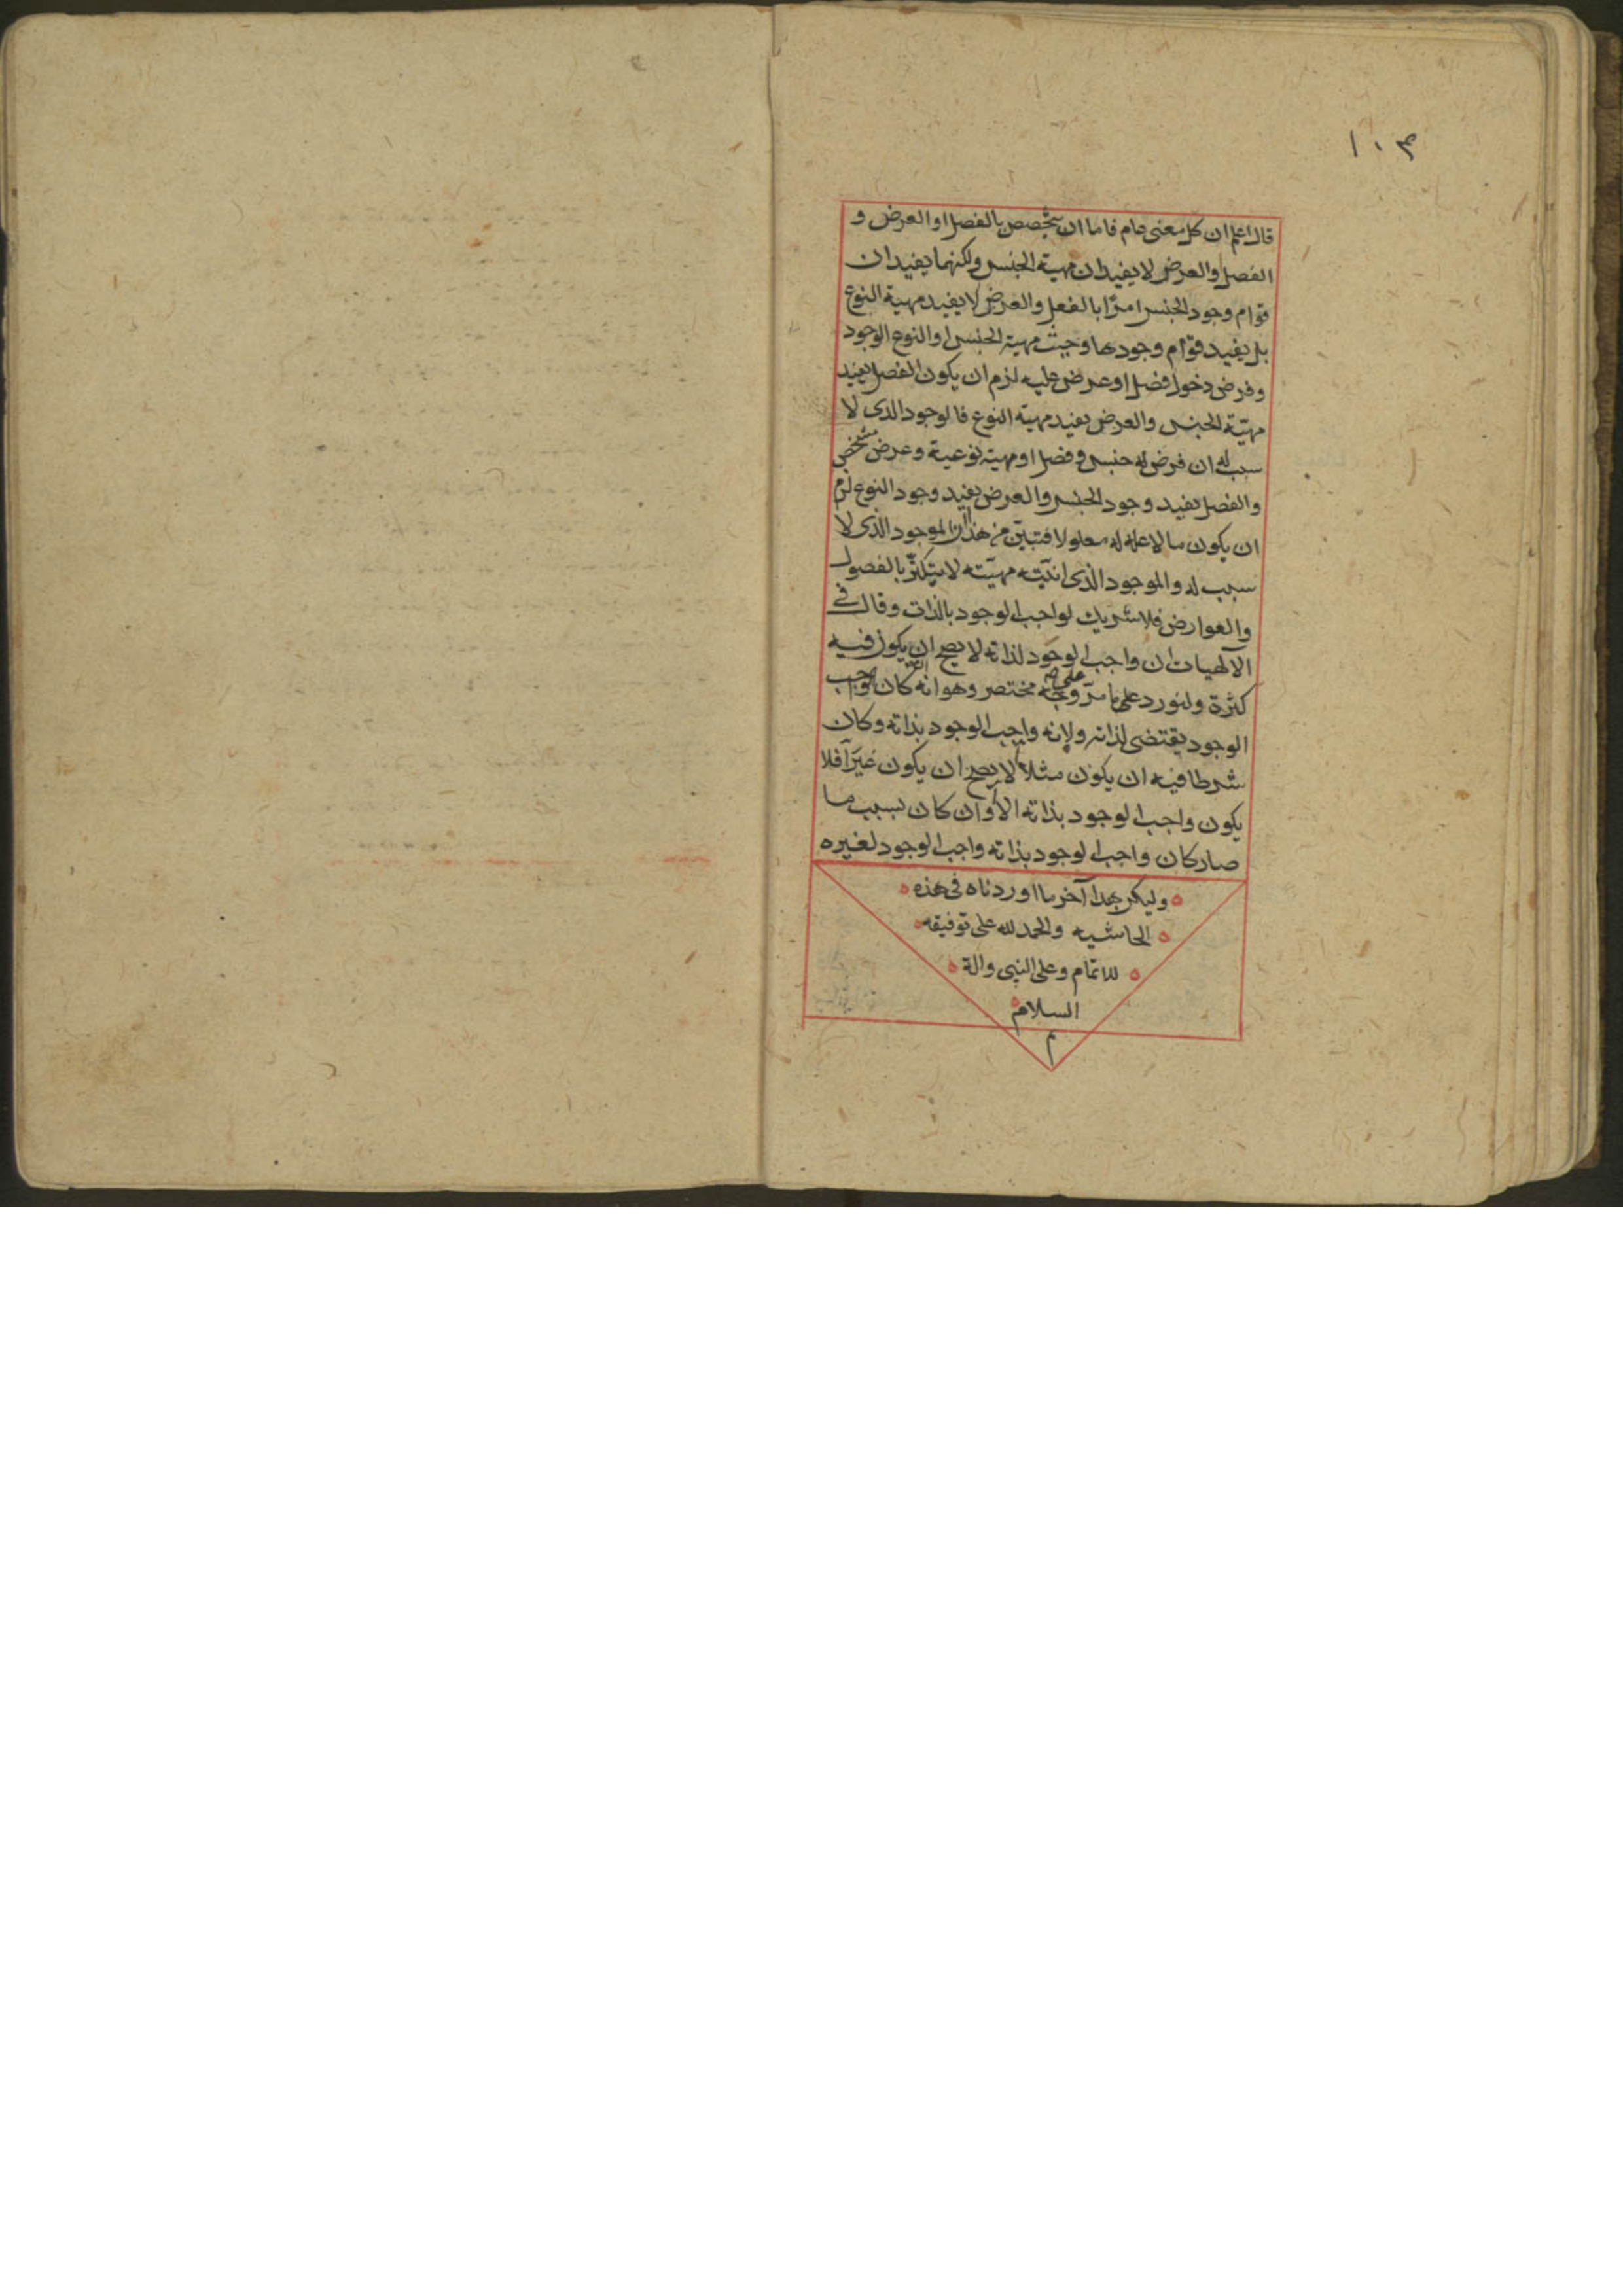 ١٠٣
قال اعلم ان كل معنى عام فاما ان يتخصص بالفصل او العرض و
الفصل والعرض لا يفيدان مهية الجنس ولكنهما يفيدان
قوام وجود الجنس امرًا بالفعل والعرض لا يفيد مهية النوع
بل يفيد قوام وجودها وحيث مهية الجنس او النوع الوجود
وفرض دخول فصل او عرض عليه لزم ان يكون الفصل يفيد
مهيّة الجنس والعرض يفيد مهية النوع فالوجود الذى لا
سبب له ان فرض له جنس وفصل او مهية نوعية وعرض مشخص
والفصل يفيد وجود الجنس والعرض يفيد وجود النوع لزم
ان يكون ما لا علة له معلولا فتبيّن من هذا ان الموجود الذى لا
سبب له والموجود الذى انيّته مهيّته لا يتكثّر بالفصول
والعوارض فلا شريك لواجب الوجود بالذات وقال فى
الآلهيات ان واجب الوجود لذاته لا يصح ان يكون فيه
كثرة ولنورد على ما مرّ وجه مختصر وهو انه كان واجب
الوجود يقتضى لذاته ولانه واجب الوجود بذاته وكان
شرطا فيه ان يكون مثلا آ لا يصح ان يكون غير آ فلا
يكون واجب الوجود بذاته الا آ وان كان بسبب ما
صار كان واجب الوجود بذاته واجب الوجود لغيره
وليكن هذا آخر ما اوردناه فى هذه
الحاشيه والحمد لله على توفيقه
للاتمام وعلى النبى واله
السلام
م